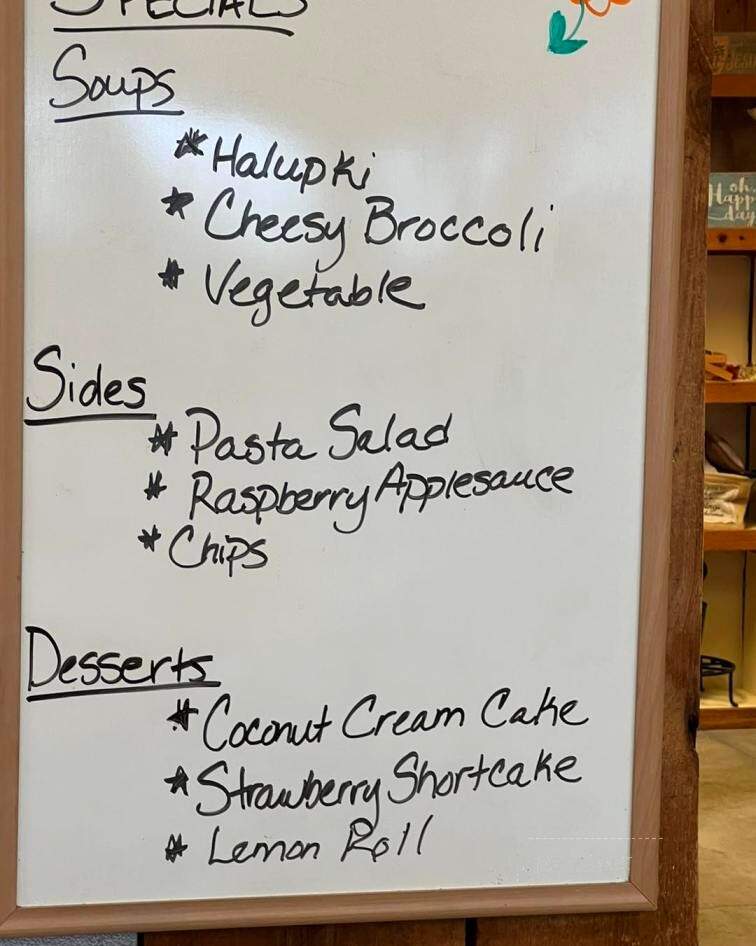 SPECIALS
Soups
* Halupki
* Cheesy Broccoli
* Vegetable
Sides
* Pasta Salad
* Raspberry Applesauce
* Chips
Desserts
* Coconut Cream Cake
* Strawberry Shortcake
* Lemon Roll
oh
Happy
day